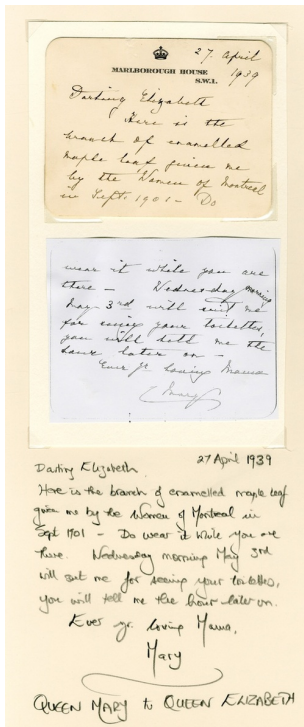 27 April
1939
MARLBOROUGH HOUSE
S.W.1.
Darling Elizabeth
Here is the
branch of enamelled
maple leaf given me
by the Women of Montreal
in Sept. 1901 - Do
wear it while you are
there - Wednesday morning
May 3rd will suit me
for seeing your toilettes,
you will tell me the
hour later on -
Ever yr. loving Mama
Mary
27 April 1939
Darling Elizabeth.
Here is the branch of enamelled maple leaf
given me by the Women of Montreal in
Sept 1901 - Do wear it while you are
there. Wednesday morning May 3rd
will suit me for seeing your toilettes,
you will tell me the hour later on.
Ever yr. loving Mama,
Mary
QUEEN MARY to QUEEN ELIZABETH